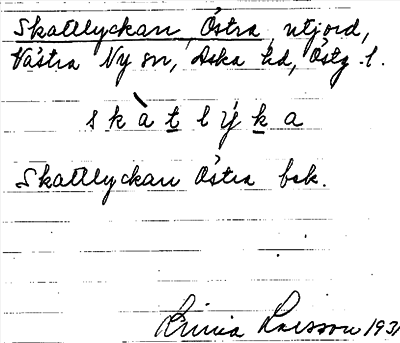 Skattlyckan Östra, utjord,
Västra Ny sn, Aska hd, Östg. l.
s k à t l ý k a
Skattlyckan Östra bsk.
Linnea Larsson 193